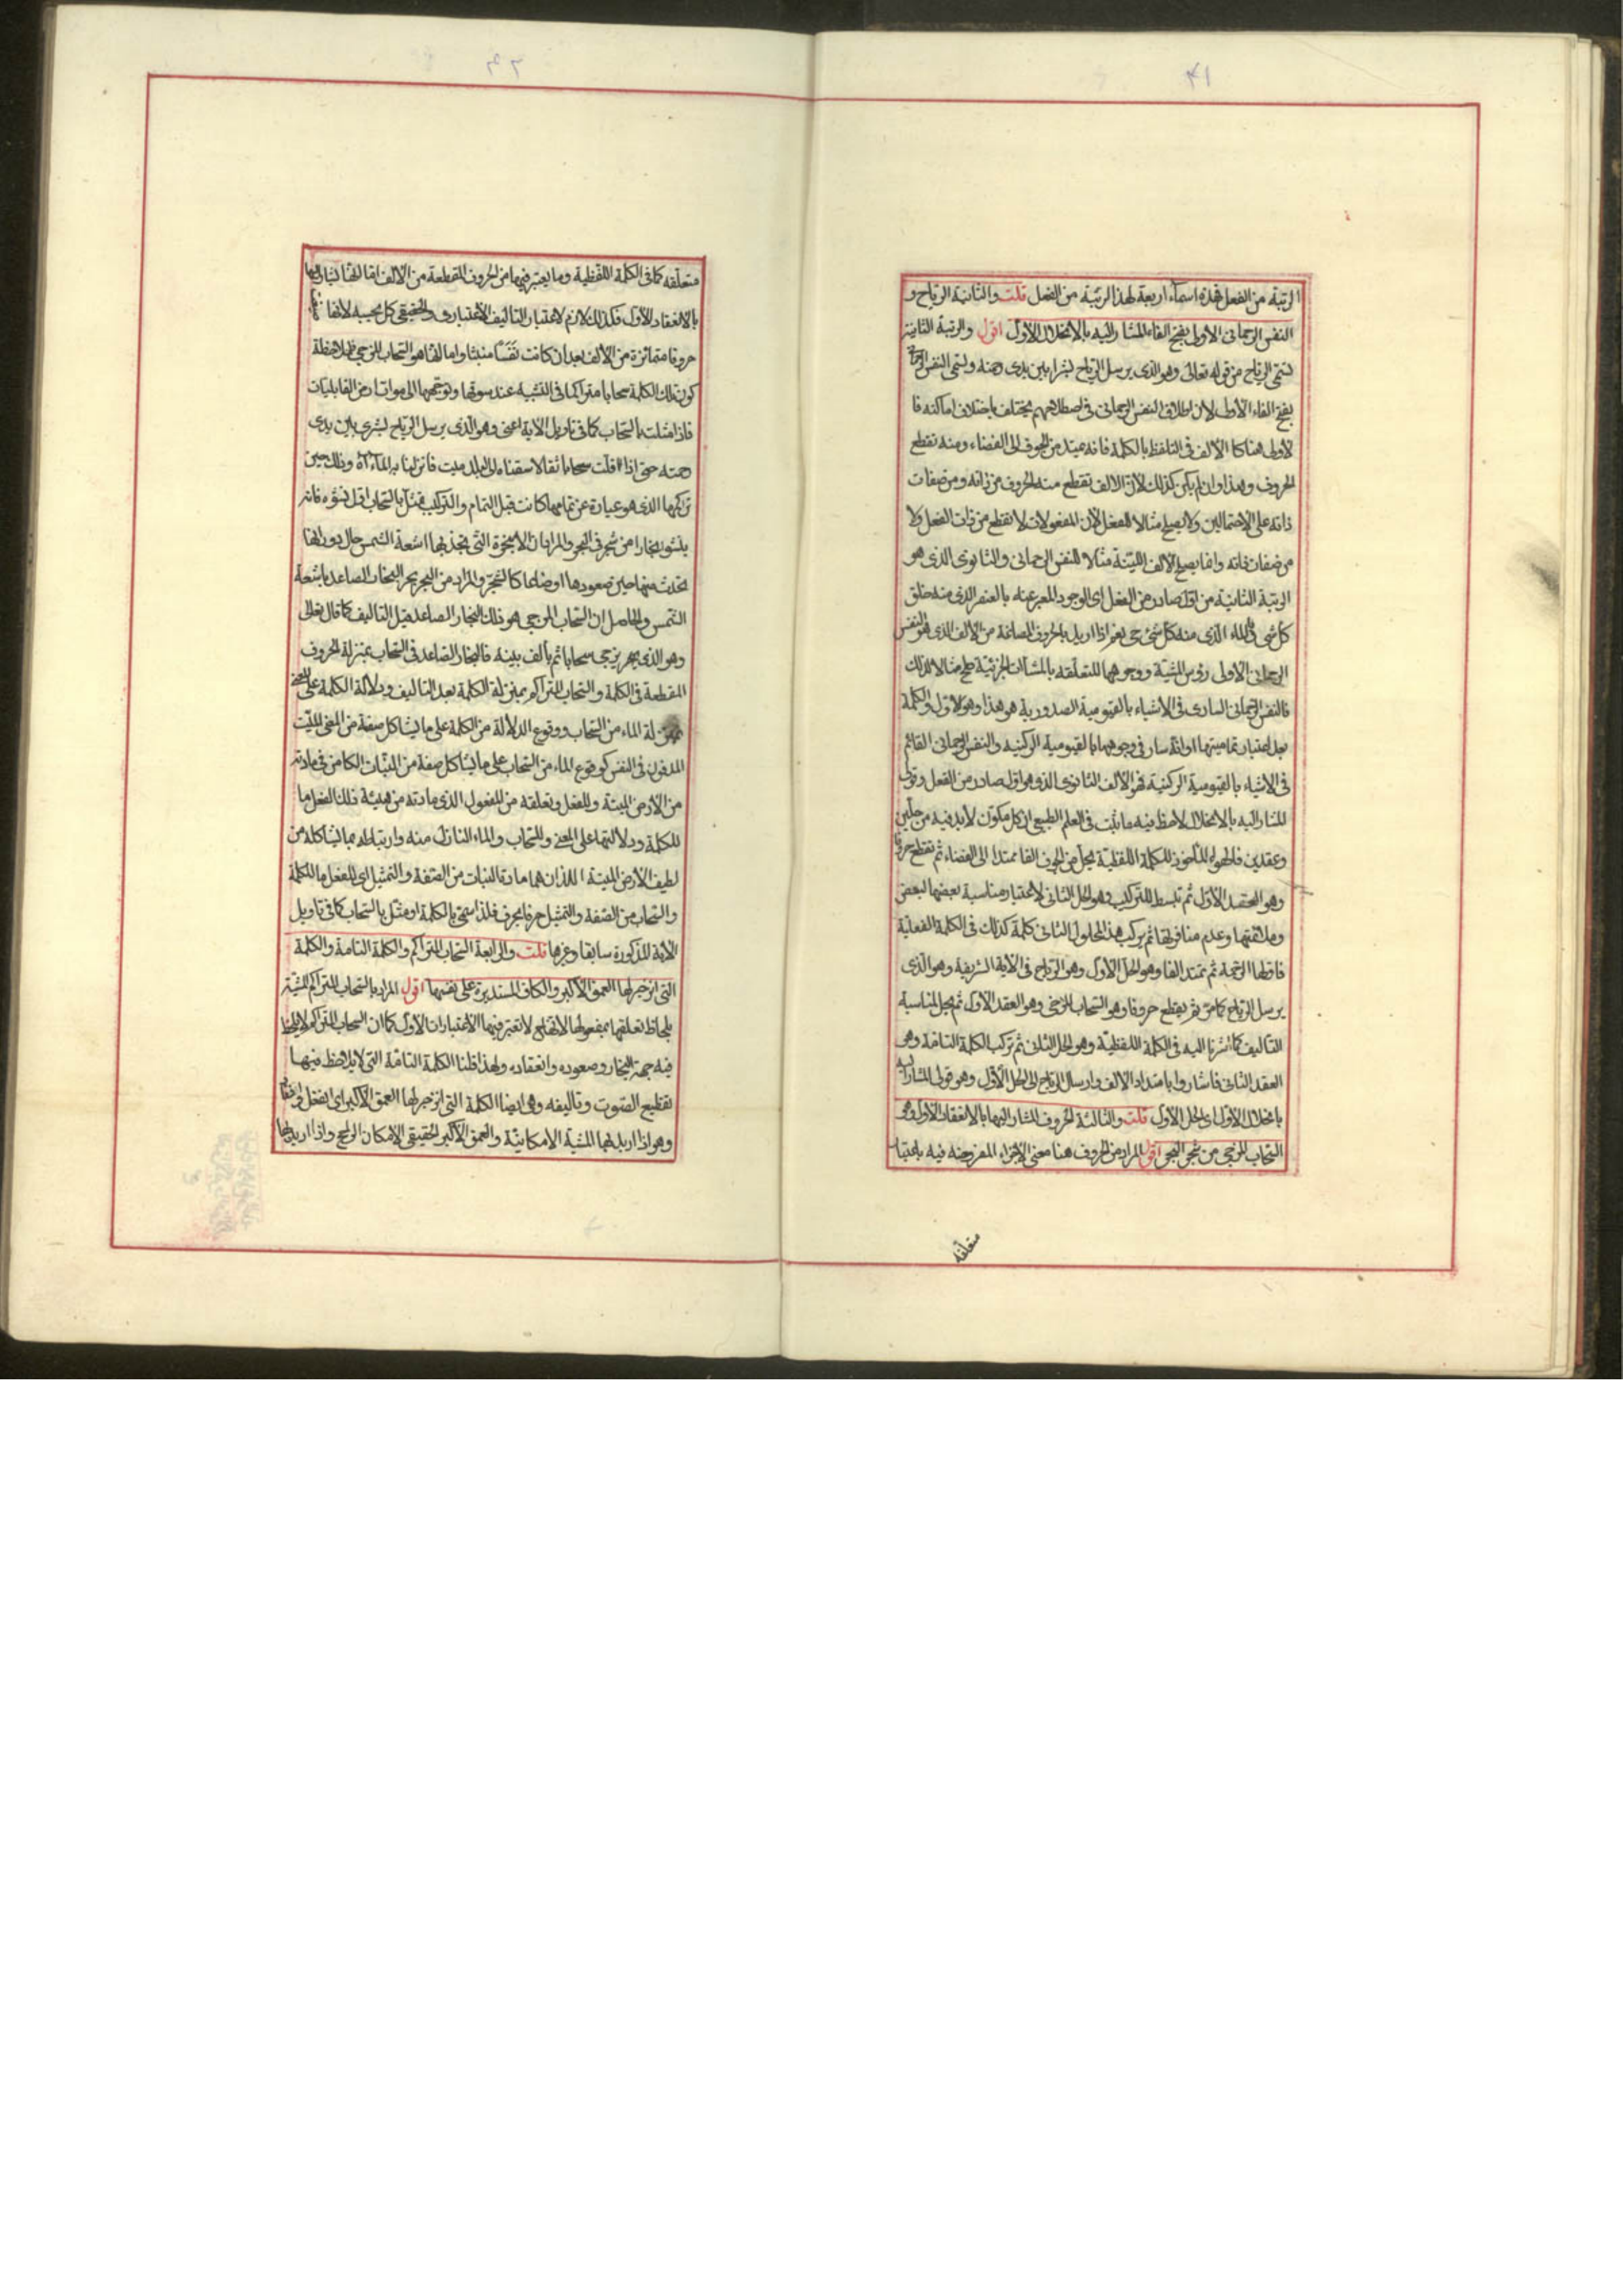 الرتبة من الفعل فهذه اسماء اربعة لهذا الرتبة من الفعل قلت والثانية الرياح و
النفس الرحماني الاولى بفتح الفاء المشار اليه بالانحلال الاول اقول والرتبة الثانية
تسمى الرياح من قوله تعالى وهو الذي يرسل الرياح بشرا بين يدى رحمته وتسمى النفس الرحماني
بفتح الفاء الاولى لان اطلاق النفس الرحماني في اصطلاحهم يختلف باختلاف اماكنه فا
لاولى هنا كالالف في التلفظ بالكلمة فانه يمتد من الجوف الى الفضاء ومنه تقطع
الحروف وهذا وان لم يكن كذلك لان الالف تقطع منه الحروف من ذاته ومن صفات
ذاته على الاحتمالين ولا يصلح مثالا للفعل لان المفعولات لا تقطع من ذات الفعل ولا
من صفات ذاته وانما يصلح الالف اللينة مثالا للنفس الرحماني والثانوي الذي هو
الرتبة الثانية من اول صادر من الفعل اى الوجود المعبر عنه بالعنصر الذي منه خلق
كل شي والماء الذي منه كل شئ حي نعم اذا اريد بالحروف المصاغة من الالف الذي هو النفس
الرحماني الاولى رؤس المشية ووجوهها المتعلقة بالمشاءات الجزئية صلح مثالا لذلك
فالنفس الرحماني الساري في الاشياء بالقيومية الصدورية هو هذا وهو الاول والكلمة
بعد اعتبار تماميتها اوانه سار في وجوهها بالقيومية الركنية والنفس الرحماني القائم
في الاشياء بالقيومية الركنية هو الالف الثانوي الذي هو اول صادر من الفعل وقولى
المشار اليه بالانحلال لاحظ فيه ما ثبت في العلم الطبيعي ان كل مكون لابد فيه من حلين
وعقدين فالهواء المأخوذ للكلمة اللفظية يحل من الجوف الفا ممتدا الى الفضاء ثم تقطع حرفا
وهو العقد الاول ثم تبسط للتركيب وهو الحل الثاني لاعتبار مناسبة بعضها لبعض
وملائمتها وعدم منافرتها ثم يركب هذا المحلول الثاني كلمة كذلك في الكلمة الفعلية
فاولها الرحمة ثم تمتد الفا وهو الحل الاول وهو الرياح في الاية الشريفة وهو الذي
يرسل الرياح كما مر ثم يقطع حروفا وهو السحاب المزجى وهو العقد الاول ثم يحل لمناسبة
التاليف كما اشرنا اليه في الكلمة اللفظية وهو الحل الثاني ثم تركب الكلمة التامة وهى
العقد الثاني فاشاروا بامتداد الالف وارسال الرياح الى الحل الاول وهو قولى المشار اليه
بانحلال الاول اى الحل الاول قلت والثالثة الحروف المشار اليها بالانعقاد الاول وهو
السحاب المزجى من شجر البحر اقول المراد من الحروف هنا معنى الاجزاء المفروضة فيه باعتبار
متعلقه
متعلقه كما في الكلمة اللفظية وما يعتبر فيها من الحروف المقطعة من الالف
بالانعقاد الاول فكذلك لازم لاعتبار التاليف الاعتباري والحقيقي كل بحسبه لانها
حروفا متمائزة من الالف بعد ان كانت نفسا منبثا واما انها هو السحاب المزجى فلملاحظة
كون تلك الكلمة سحابا متراكما في التشبيه عند سوقها وتوجهها الى موات ارض القابليات
فاذا مثلت بالسحاب كما في تاويل الاية اعنى وهو الذي يرسل الرياح بشرى بين يدى
رحمته حتى اذا اقلت سحابا ثقالا سقناه الى بلد ميت فانزلنا به الماء الآية وذلك حين
تراكمها الذي هو عبارة عن تمامها كانت قبل التمام والتركيب تمثل بالسحاب اول نشوه فانه
ينشو بخارا من شجر في البحر والمراد بها الابخرة التي تجذبها اشعة الشمس حال دورانها
تحدث منها حين صعودها اوضاعا كالشجر والمراد من البحر بحر البخار الصاعد باشعة
الشمس والحاصل ان السحاب المزجى هو ذلك البخار الصاعد قبل التاليف كما قال تعالى
وهو الذي يزجى سحابا ثم يألف بينه فالبخار الصاعد في السحاب بمنزلة الحروف
المقطعة في الكلمة والسحاب المتراكم بمنزلة الكلمة بعد التاليف ودلالة الكلمة على المعنى
بمنزلة الماء من السحاب ووقوع الدلالة من الكلمة على ما يشاكل صفة من المعنى الميت
المدفون في النفس كوقوع الماء من السحاب على ما يشاكل صفة من النبات الكامن في مادته
من الارض الميتة وللفعل وتعلقه من المفعول الذي مادته من هيئة ذلك الفعل ما
للكلمة ودلالتها على المعنى وللسحاب والماء النازل منه وارتباطه بما يشاكله من
لطيف الارض الميتة اللذان هما مادة النبات من الصفة والتمثيل اى للفعل ما للكلمة
والسحاب من الصفة والتمثيل حرفا بحرف فلذا سمى بالكلمة او مثل بالسحاب كما في تاويل
الاية المذكورة سابقا وغيرها قلت والرابعة السحاب المتراكم والكلمة التامة والكلمة
التي انزجر لها العمق الاكبر والكاف المستديرة على نفسها اقول المراد بالسحاب المتراكم المشية
بلحاظ تعلقها بمفعولها لا تعتبر فيها الاعتبارات الاول كما ان السحاب المتراكم لا يلحظ
فيه جهة البخار وصعوده وانعقاده ولهذا قلنا الكلمة التامة التي لا يلاحظ فيها
تقطيع الصوت وتاليفه وهى ايضا الكلمة التي انزجر لها العمق الاكبر اى انفعل
وهو اذا اريد بها المشية الامكانية والعمق الاكبر الحقيقي الامكان الراجح واذا اريد بها